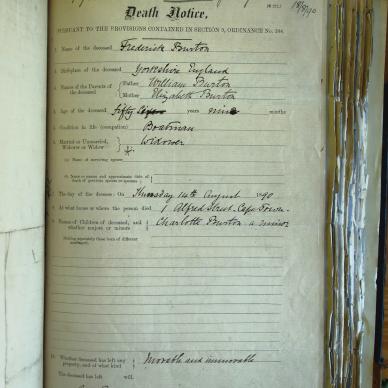 18/8/90
Death Notice,
PURSUANT TO THE PROVISIONS CONTAINED IN SECTION 9, ORDINANCE No. 104.
Name of the deceased Frederick Burton
Birthplace of the deceased Yorkshire England
Names of the Parents of the deceased Father William Burton
Mother Elizabeth Burton
Age of the deceased fifty years nine months
Condition in life (occupation) Boatman
Married or Unmarried, Widower or Widow Widower
(a) Name of surviving spouse
(b) Name or names and approximate date of death of previous spouse or spouses
The day of the decease: On Thursday 14th August 1890
At what house or where the person died 1 Alfred Street Cape Town
Names of Children of deceased, and whether majors or minors Charlotte Burton a minor
Stating separately those born of different marriages.
Whether deceased has left any property, and of what kind Movable and immovable
The deceased has left will.